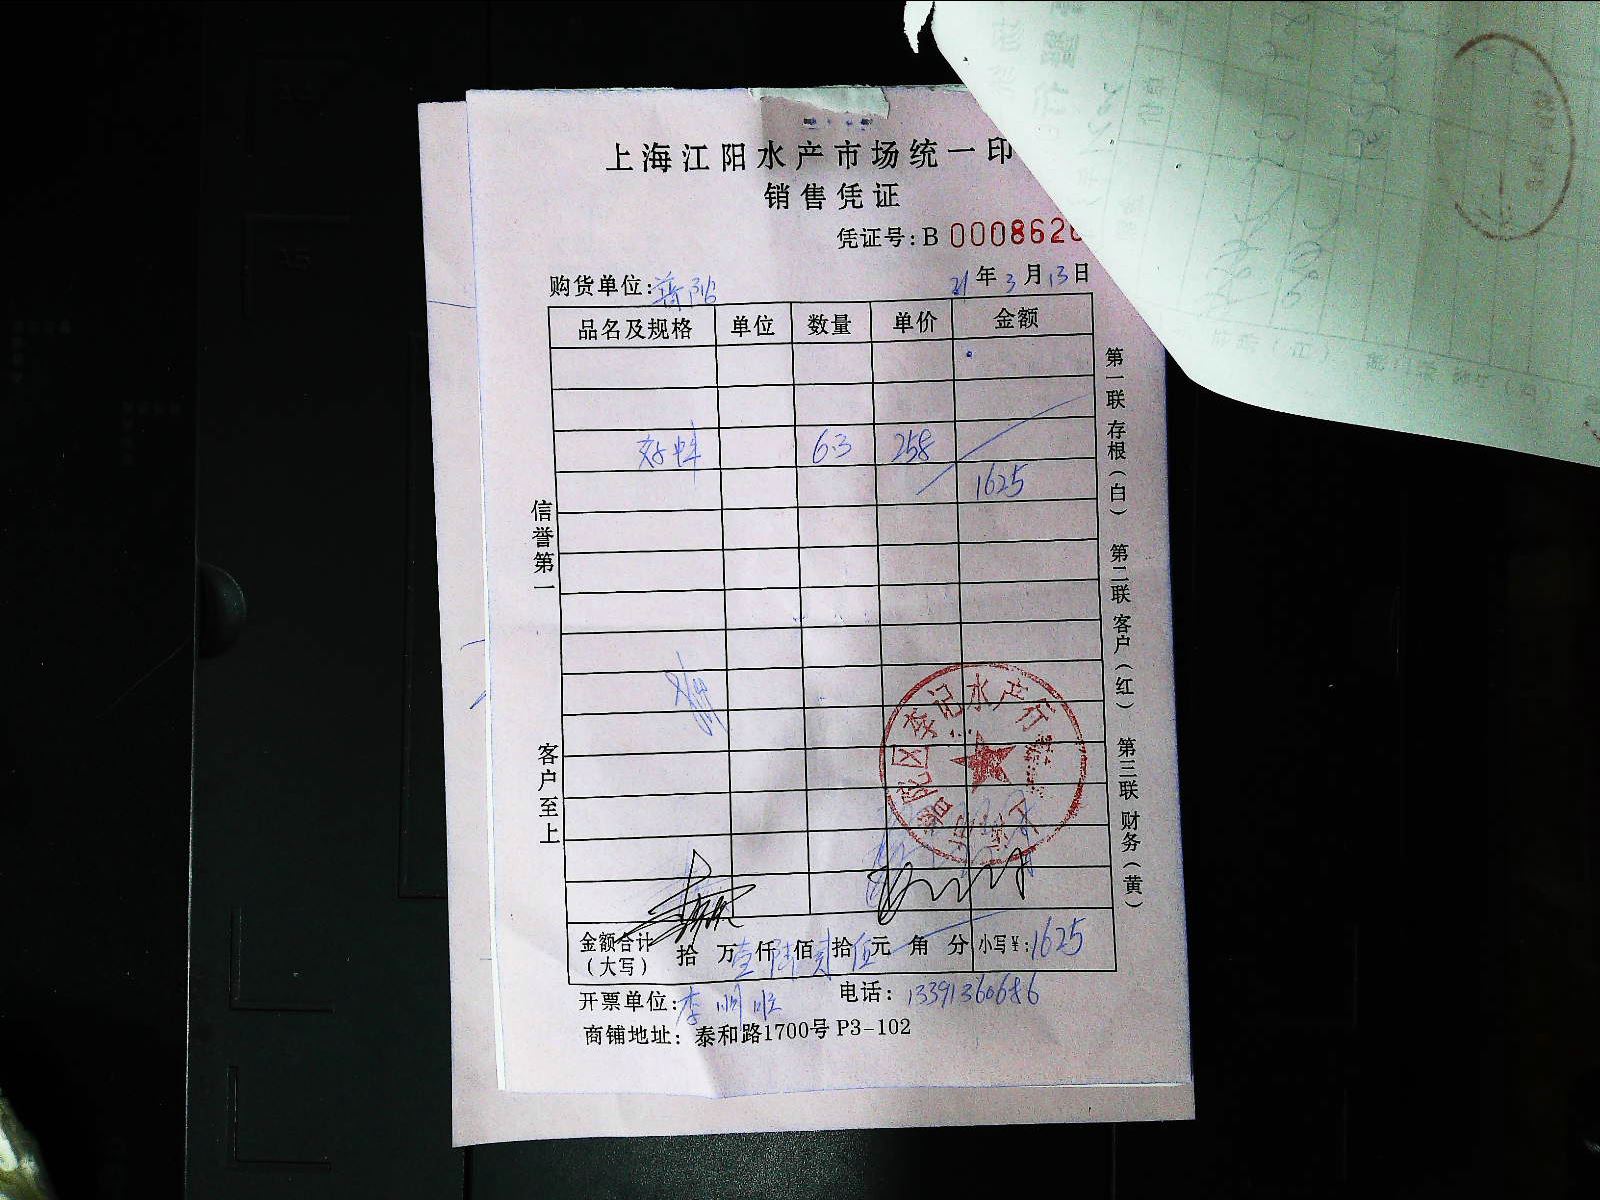 上海江阳水产市场统一印
销售凭证
凭证号: B 0008626
购货单位:
21年3月13日
品名及规格 单位 数量 单价 金额
6.3 258
1625
信誉第一
客户至上
第一联 存根(白) 第二联 客户(红) 第三联 财务(黄)
李记水产行
金额合计(大写) 拾 万壹仟陆佰贰拾伍元 角 分 小写¥: 1625
开票单位: 李
电话: 13391360686
商铺地址: 泰和路1700号 P3-102